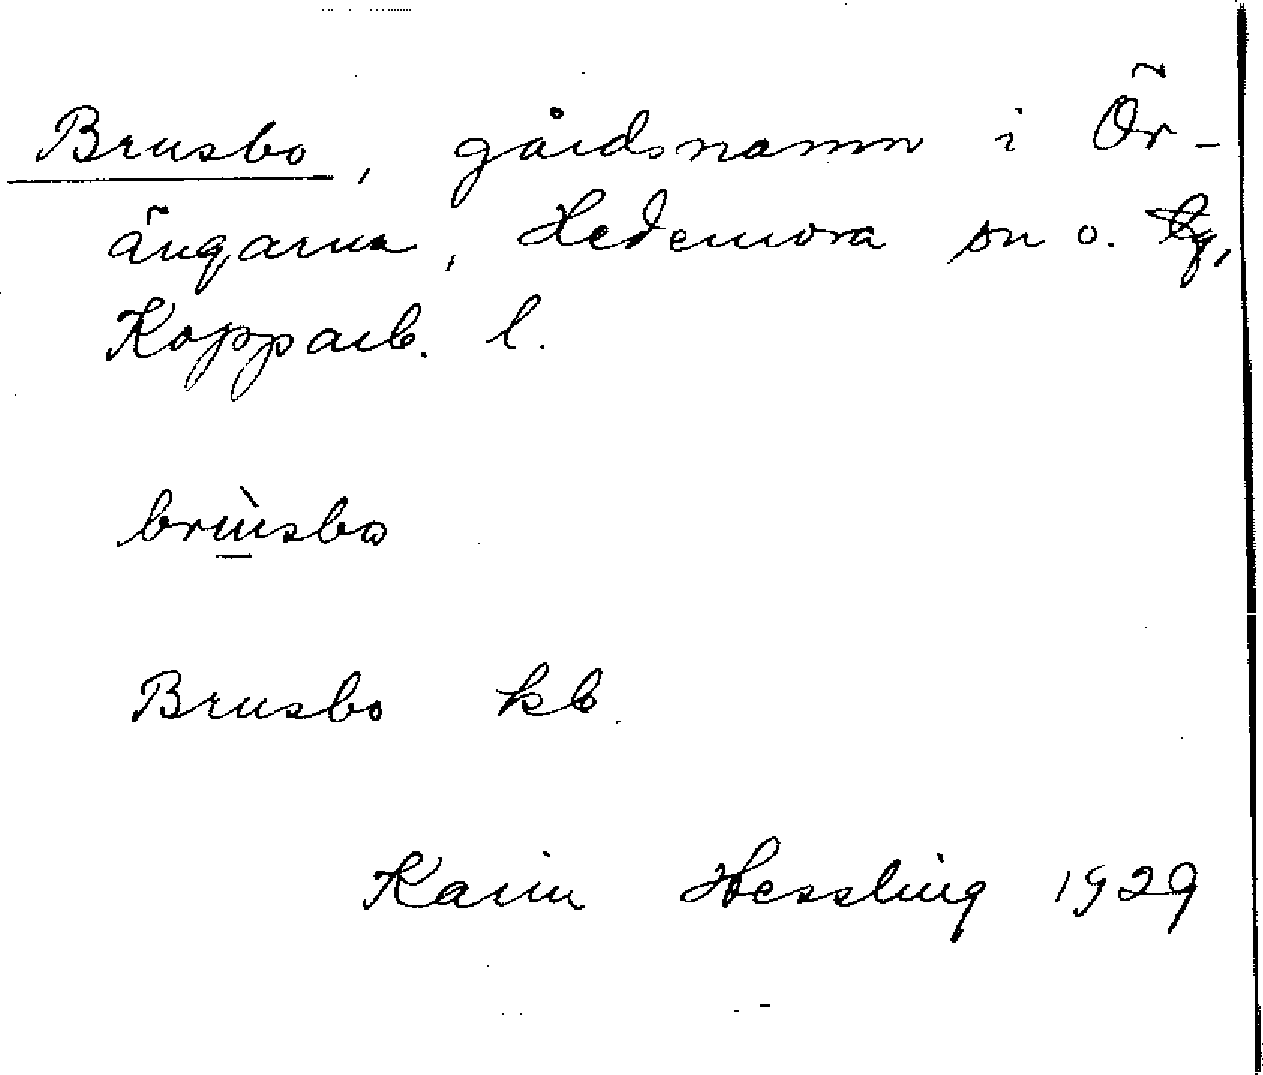 Brusbo, gårdsnamn i Ör-
ängarna, Hedemora sn o. tg,
Kopparb. l.
brùsbo
Brusbo kb.
Karin Hessling 1929